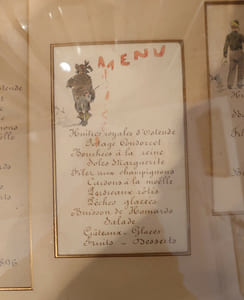 MENU
Huîtres royales d'Ostende
Potage Condorcet
Bouchées à la reine
Soles Marguerite
Filet aux champignons
Cardons à la moëlle
Perdreaux rôtis
Pêches glacées
Buisson de Homards
Salade
Gâteaux - Glaces
Fruits - Desserts